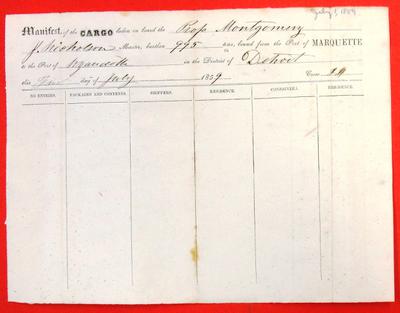 July 1, 1859
Manifest of the CARGO laden on board the Prop Montgomery
J. Nicholson Master, burthen 995 tons, bound from the Port of MARQUETTE
to the Port of Wyandotte in the District of Detroit
this day of July 1859
NO ENTRIES. PACKAGES AND CONTENTS. SHIPPERS. RESIDENCE. CONSIGNEES. RESIDENCE.